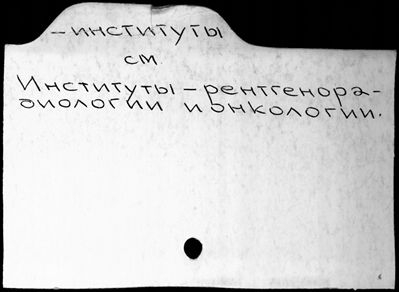 – институты
см
Институты – рентгенора-
диологии и онкологии.